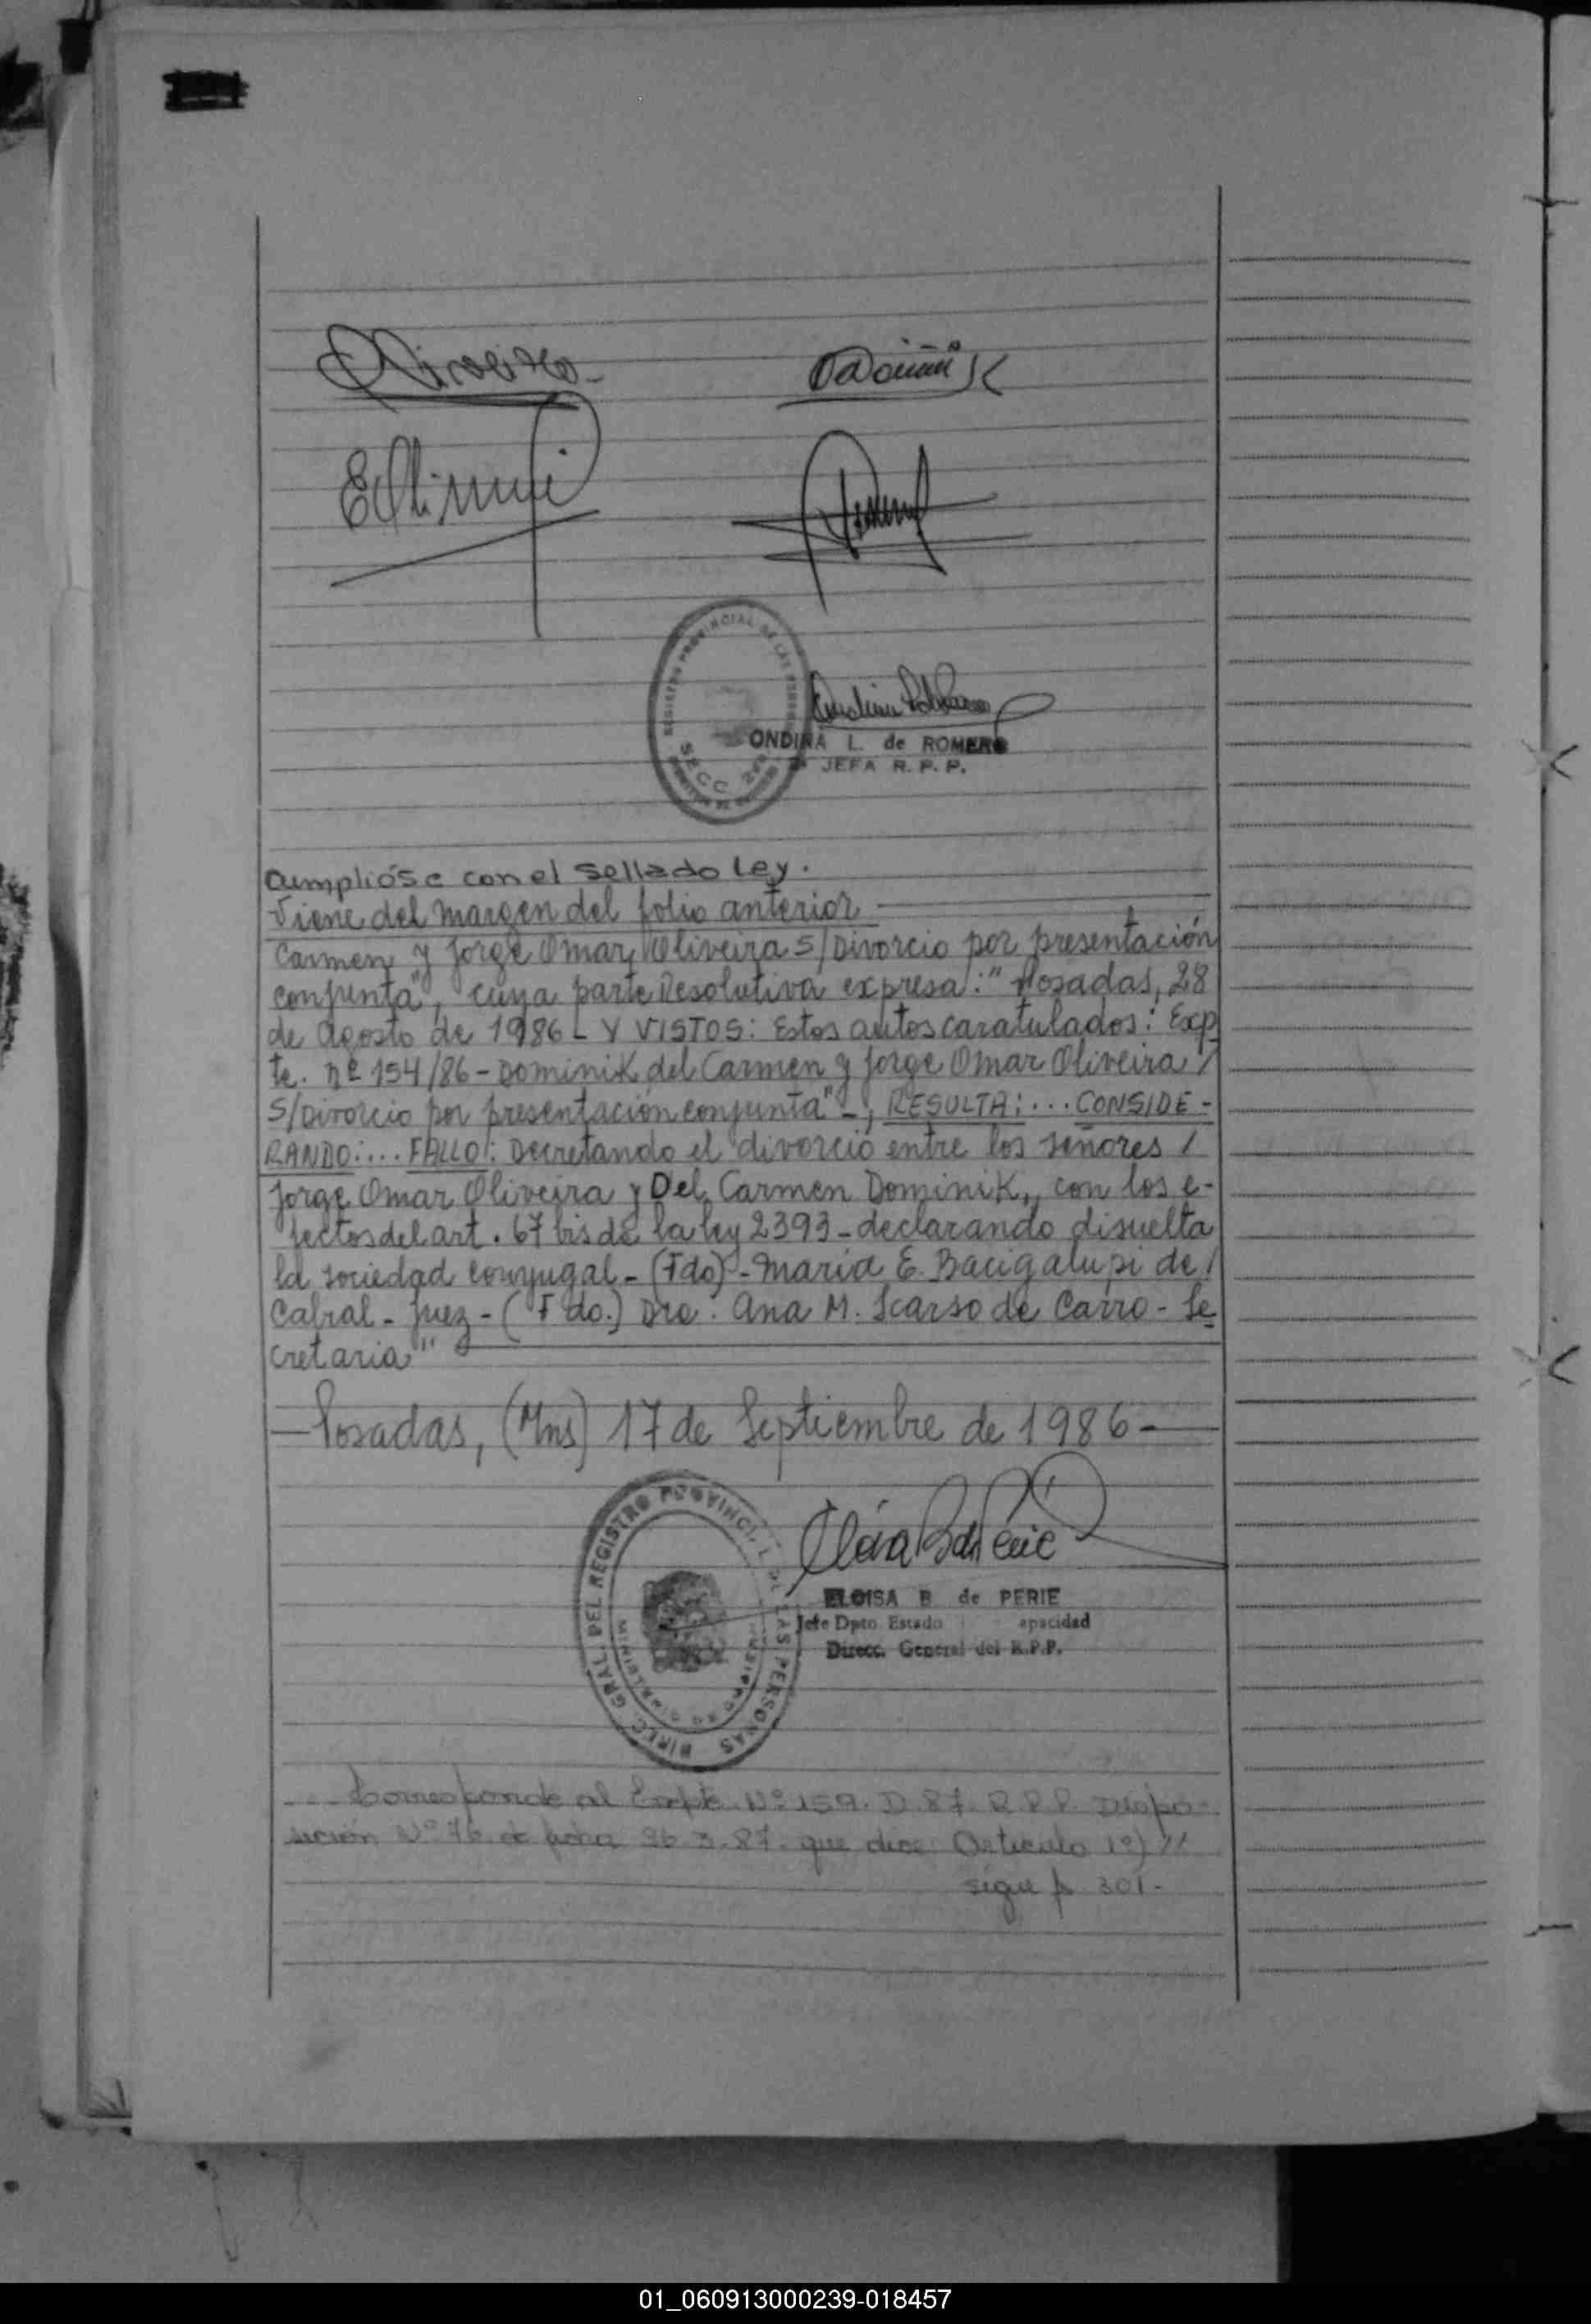 Oliveira
Dominik
REGISTRO PROVINCIAL DE LAS PERSONAS
SECC
ONDINA L. de ROMERO
JEFA R. P. P.
Cumplióse con el Sellado Ley.
Viene del margen del folio anterior
Carmen y Jorge Omar Oliveira S/Divorcio por presentación
conjunta", cuya parte Resolutiva expresa: "Posadas, 28
de Agosto de 1986 - Y VISTOS: Estos autos caratulados: Exp
te. nº 154/86 - Dominik del Carmen y Jorge Omar Oliveira /
S/Divorcio por presentación conjunta" -, RESULTA: ... CONSIDE -
RANDO: ... FALLO: Decretando el divorcio entre los señores /
Jorge Omar Oliveira y Del Carmen Dominik, con los e-
fectos del art. 67 bis de la ley 2393 - declarando disuelta
la sociedad conyugal - (Fdo) - María E. Bacigalupi de /
Cabral - Juez - (Fdo.) Dra. Ana M. Scarso de Carro - Se
cretaria"
— Posadas, (Mns) 17 de Septiembre de 1986 —
DIREC. GRAL. DEL REGISTRO PROVINCIAL DE LAS PERSONAS
ELOISA B de PERIE
Jefe Dpto. Estado apacidad
Direcc. General del R.P.P.
Corresponde al Expte Nº 159. D. 87. R.P.P. Dispo-
sición Nº 76 de fecha 26.3.87. que dice: Artículo 1º) //
sigue p 301 -
01_060913000239-018457